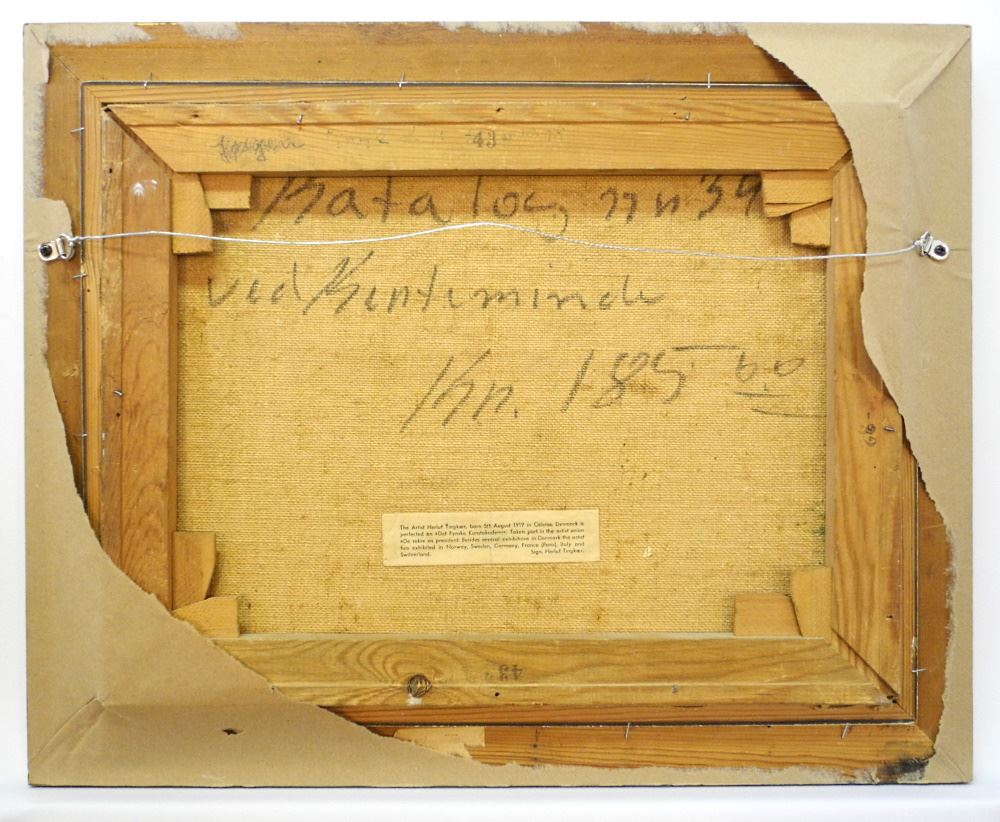 43
Katalog nr 39
ved Kerteminde
Kr. 185 00
The Artist Herluf Tingkær, born 5th August 1919 in Odense Denmark is
perfected on »Det Fynske Kunstakademi«. Taken part in the artist union
»De seks« as president. Besides several exhibitions in Denmark the artist
has exhibited in Norway, Sweden, Germany, France (Paris), Italy and
Switzerland. Sign. Herluf Tingkær.
43